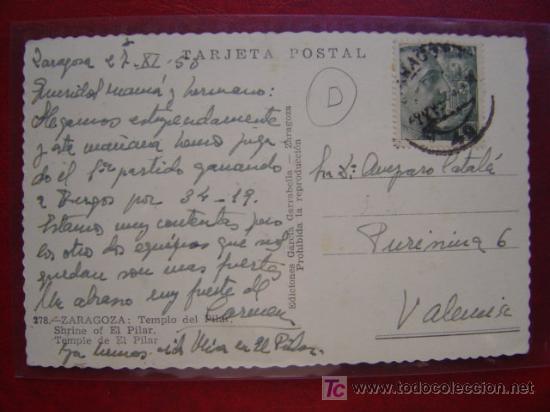 TARJETA POSTAL
Zaragoza 27-XI-53
Querida mamá y hermano:
Llegamos estupendamente
y esta mañana hemos juga
do el 1er partido ganando
a Burgos por 34-19.
Estamos muy contentas pero
los otro dos equipos que nos
quedan son mas fuertes
Un abrazo muy fuerte de
Carmen
Ya hemos oido Misa en El Pilar.
278.-ZARAGOZA: Templo del Pilar.
Shrine of El Pilar.
Temple de El Pilar
Ediciones García Garrabella — Zaragoza
Prohibida la reproducción
D
ZARAGOZA
Sra Dª Amparo Catalá
Purisima 6
Valencia
TC todocoleccion